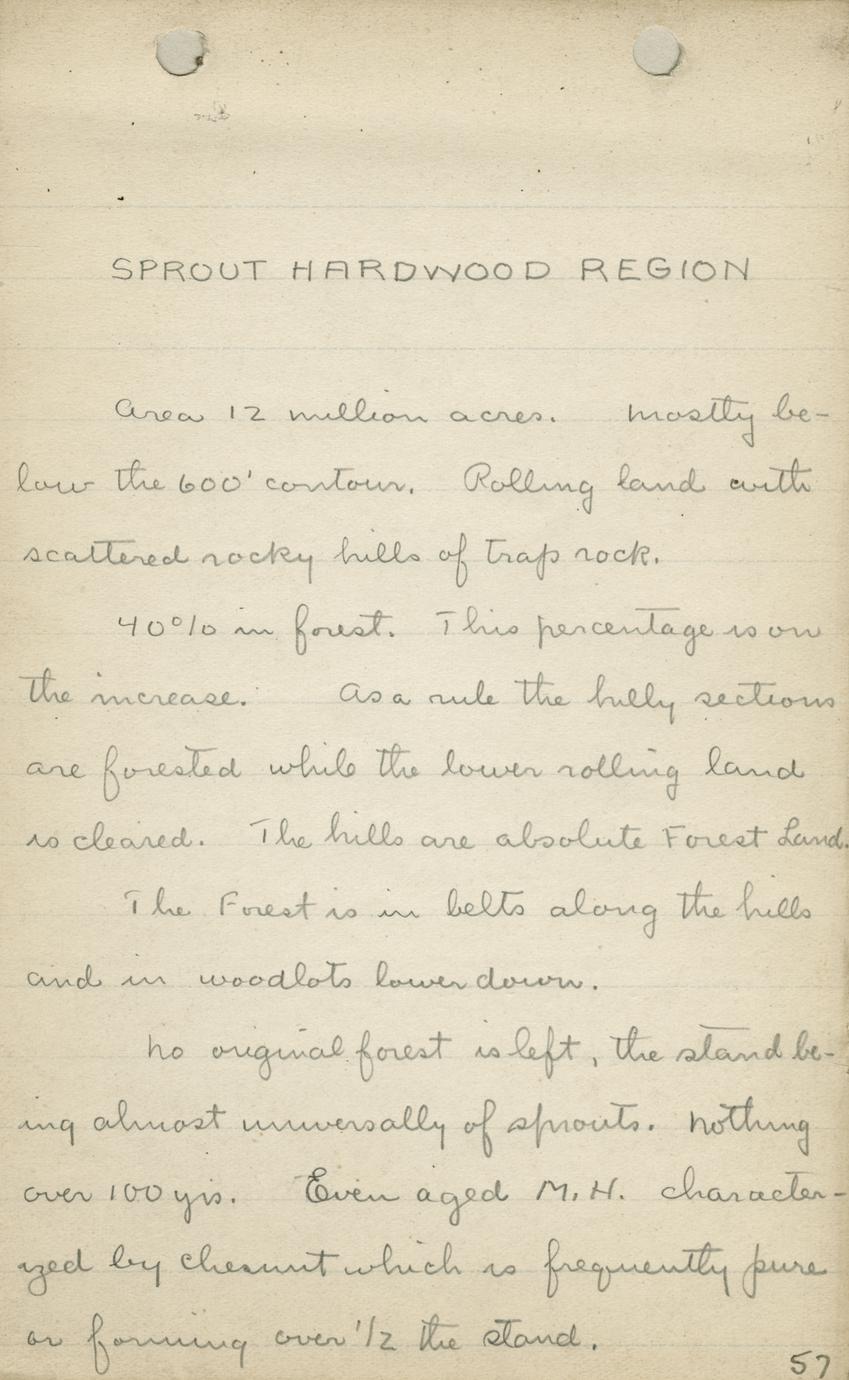 SPROUT HARDWOOD REGION
Area 12 million acres. Mostly be-
low the 600' contour. Rolling land with
scattered rocky hills of trap rock.
40% in forest. This percentage is on
the increase. As a rule the hilly sections
are forested while the lower rolling land
is cleared. The hills are absolute Forest Land.
The Forest is in belts along the hills
and in woodlots lower down.
No original forest is left, the stand be-
ing almost universally of sprouts. Nothing
over 100 yrs. Even aged M.H. character-
ized by chesnut which is frequently pure
or forming over 1/2 the stand.
57